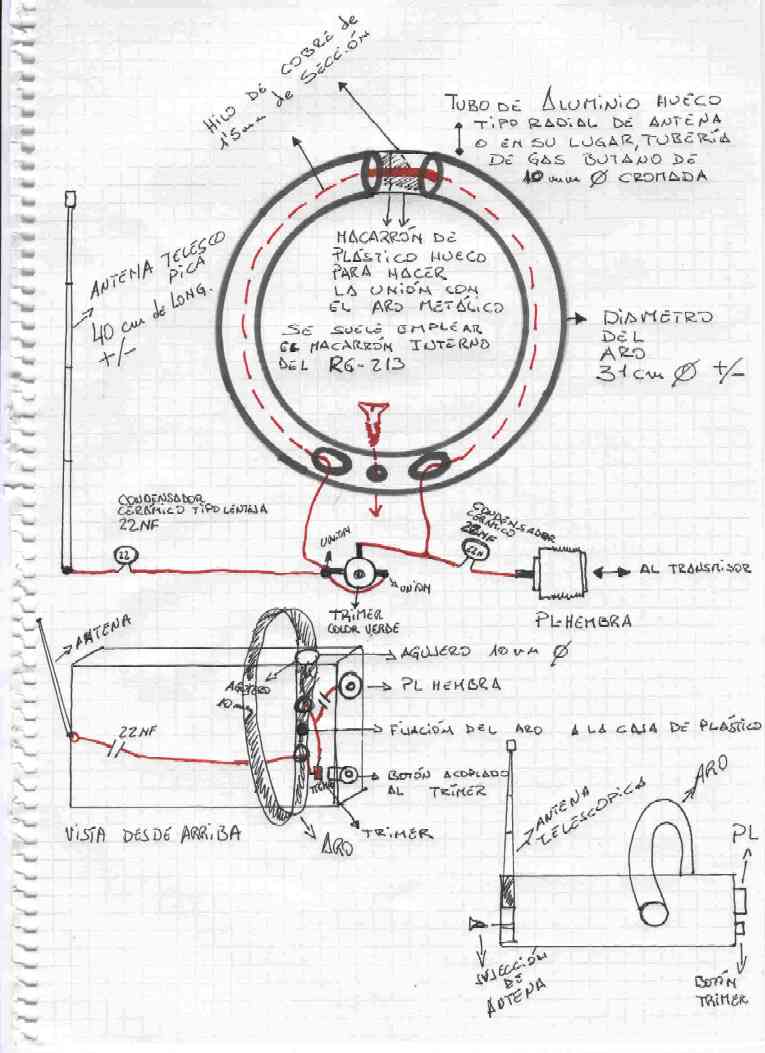 HILO DE COBRE de
1'5mm de SECCIÓN
TUBO DE ALUMINIO HUECO
TIPO RADIAL DE ANTENA
O EN SU LUGAR, TUBERÍA
DE GAS BUTANO DE
10 mm Ø CROMADA
ANTENA TELESCO
PICA
40 cm de LONG.
+/-
MACARRÓN DE
PLÁSTICO HUECO
PARA HACER
LA UNIÓN CON
EL ARO METÁLICO
SE SUELE EMPLEAR
EL MACARRÓN INTERNO
DEL RG-213
DIAMETRO
DEL
ARO
31 cm Ø +/-
CONDENSADOR
CERÁMICO TIPO LENTEJA
22NF
22
UNION
UNION
TRIMER
COLOR VERDE
CONDENSADOR
CERÁMICO
22NF
22N
AL TRANSMISOR
PL-HEMBRA
ANTENA
22NF
AGUJERO
10 mm
AGUJERO 10 mm Ø
PL HEMBRA
FIJACIÓN DEL ARO A LA CAJA DE PLÁSTICO
BOTÓN ACOPLADO
AL TRIMER
TRIMER
ARO
VISTA DESDE ARRIBA
ANTENA
TELESCOPICA
ARO
PL
SUJECCIÓN
DE
ANTENA
BOTÓN
TRIMER